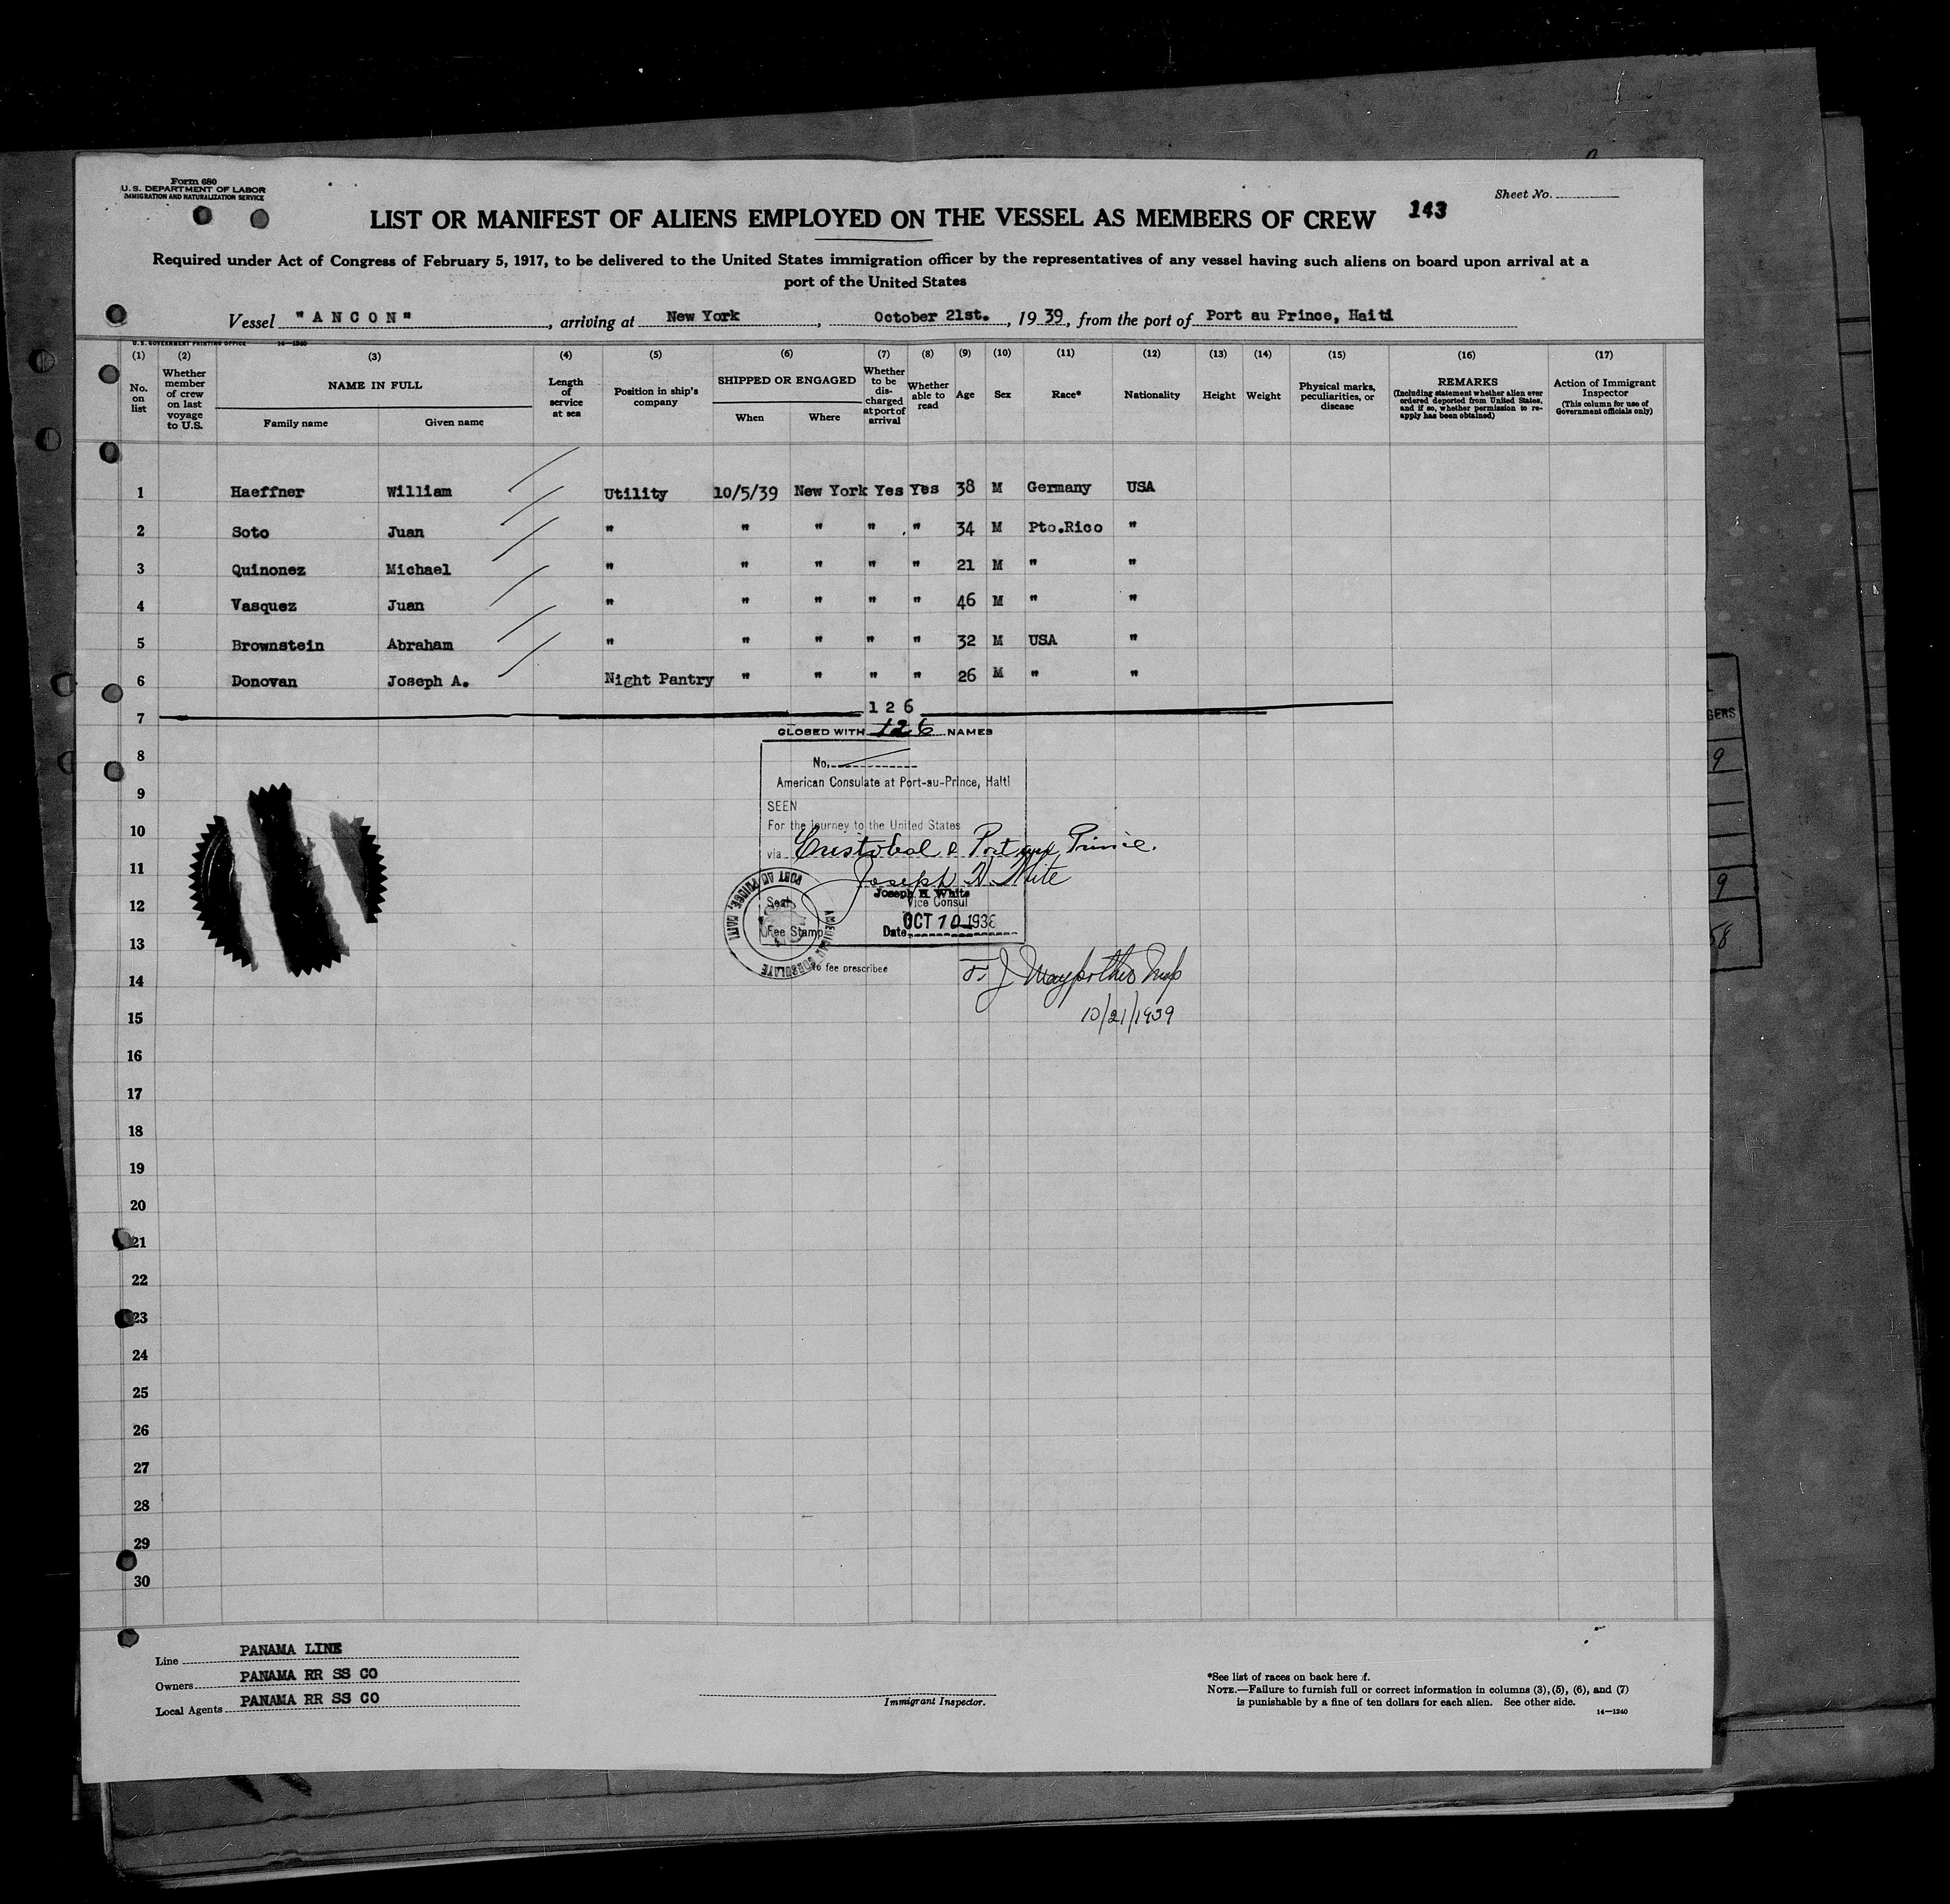 Form 680
U. S. DEPARTMENT OF LABOR
IMMIGRATION AND NATURALIZATION SERVICE
Sheet No.
LIST OR MANIFEST OF ALIENS EMPLOYED ON THE VESSEL AS MEMBERS OF CREW 143
Required under Act of Congress of February 5, 1917, to be delivered to the United States immigration officer by the representatives of any vessel having such aliens on board upon arrival at a
port of the United States
Vessel "ANCON", arriving at New York, October 21st., 1939, from the port of Port au Prince, Haiti
U. S. GOVERNMENT PRINTING OFFICE 14—1240
(1) (2) (3) (4) (5) (6) (7) (8) (9) (10) (11) (12) (13) (14) (15) (16) (17)
No. on list
Whether member of crew on last voyage to U.S.
NAME IN FULL
Family name Given name
Length of service at sea
Position in ship's company
SHIPPED OR ENGAGED
When Where
Whether to be discharged at port of arrival
Whether able to read
Age
Sex
Race*
Nationality
Height
Weight
Physical marks, peculiarities, or disease
REMARKS
(Including statement whether alien ever ordered deported from United States, and if so, whether permission to reapply has been obtained)
Action of Immigrant Inspector
(This column for use of Government officials only)
1 Haeffner William Utility 10/5/39 New York Yes Yes 38 M Germany USA
2 Soto Juan " " " " " 34 M Pto.Rico "
3 Quinonez Michael " " " " " 21 M " "
4 Vasquez Juan " " " " " 46 M " "
5 Brownstein Abraham " " " " " 32 M USA "
6 Donovan Joseph A. Night Pantry " " " " 26 M " "
126
7
CLOSED WITH 126 NAMES
8
No.
American Consulate at Port-au-Prince, Haiti
9
SEEN
10
For the journey to the United States
via Cristobal & Port au Prince.
11
Joseph H. White
Joseph H White
12
Vice Consul
Seal
OCT 10 193
Fee Stamp Date
13
PORT AU PRINCE, HAITI
AMERICAN CONSULATE
No fee prescribed
14
15
10/21/1939
16
17
18
19
20
21
22
23
24
25
26
27
28
29
30
Line PANAMA LINE
Owners PANAMA RR SS CO
Local Agents PANAMA RR SS CO
Immigrant Inspector.
*See list of races on back hereof.
NOTE.—Failure to furnish full or correct information in columns (3), (5), (6), and (7)
is punishable by a fine of ten dollars for each alien. See other side.
14—1240
GERS
9
9
58